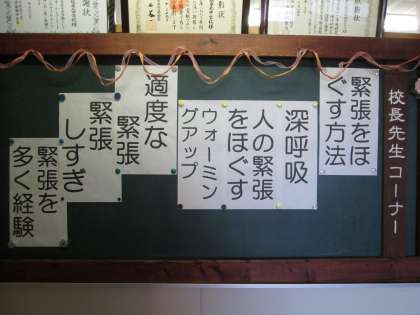 校長先生コーナー
緊張をほ
ぐす方法
深呼吸
人の緊張
をほぐす
ウォーミン
グアップ
適度な
緊張
緊張
しすぎ
緊張を
多く経験